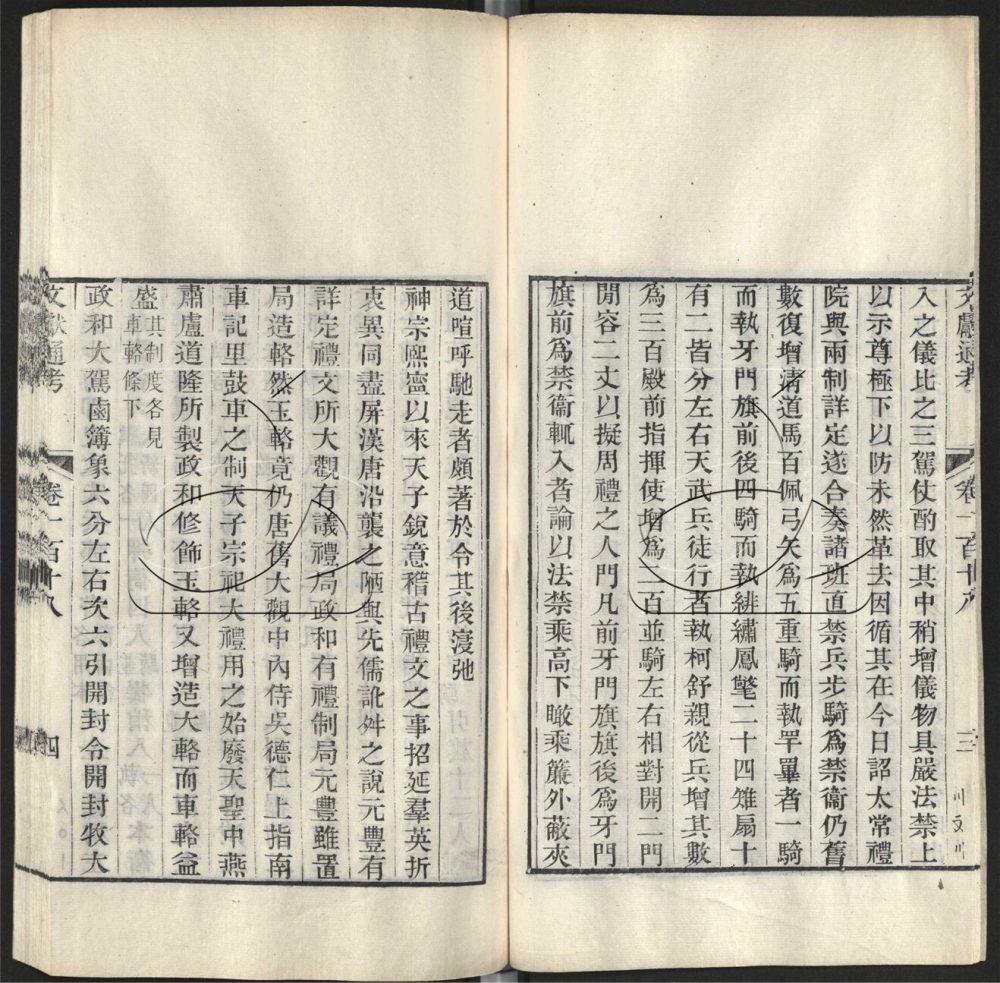 文獻通考 卷一百十八 三
入之儀比之三駕仗酌取其中稍增儀物具嚴法禁上
以示尊極下以防未然革去因循其在今日詔太常禮
院與兩制詳定遂合奏諸班直禁兵步騎爲禁衞仍舊
數復增清道馬百佩弓矢爲五重騎而執罕罼者一騎
而執牙門旗前後四騎而執緋繡鳳氅二十四雉扇十
有二皆分左右天武兵徒行者執柯舒親從兵增其數
爲三百殿前指揮使增爲二百並騎左右相對開二門
閒容二丈以擬周禮之人門凡前牙門旗旗後爲牙門
旗前爲禁衞輒入者論以法禁乘高下瞰乘簾外蔽夾
道喧呼馳走者頗著於令其後寖弛
神宗熙寧以來天子銳意稽古禮文之事招延羣英折
衷異同盡屏漢唐沿襲之陋與先儒訛舛之說元豐有
詳定禮文所大觀有議禮局政和有禮制局元豐雖置
局造輅然玉輅竟仍唐舊大觀中內侍吳德仁上指南
車記里鼓車之制天子宗祀大禮用之始廢天聖中燕
肅盧道隆所製政和修飾玉輅又增造大輅而車輅益
盛其制度各見車輅條下
政和大駕鹵簿象六分左右次六引開封令開封牧大
文獻通考 卷一百十八 四